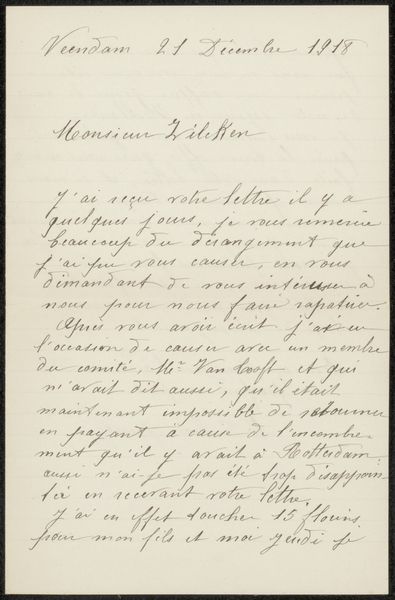 Veendam 21 Décembre 1918
Monsieur Zilcken
J'ai reçu votre lettre il y a
quelques jours, je vous remercie
beaucoup du dérangement que
j'ai pu vous causer, en vous
demandant de vous intéresser à
nous pour nous faire rapatrier.
Après vous avoir écrit j'ai eu
l'occasion de causer avec un membre
du comité, Mr Van Hooft et qui
m'avait dit aussi, qu'il était
maintenant impossible de retourner
en payant à cause de l'encombre-
ment qu'il y avait à Rotterdam
aussi n'ai-je pas été trop désappoin-
tée en recevant votre lettre.
J'ai en effet toucher 15 florins
pour mon fils et moi jeudi je